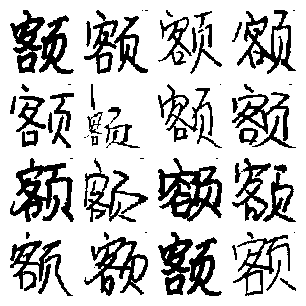 额额额额
额额额额
额额额额
额额额额